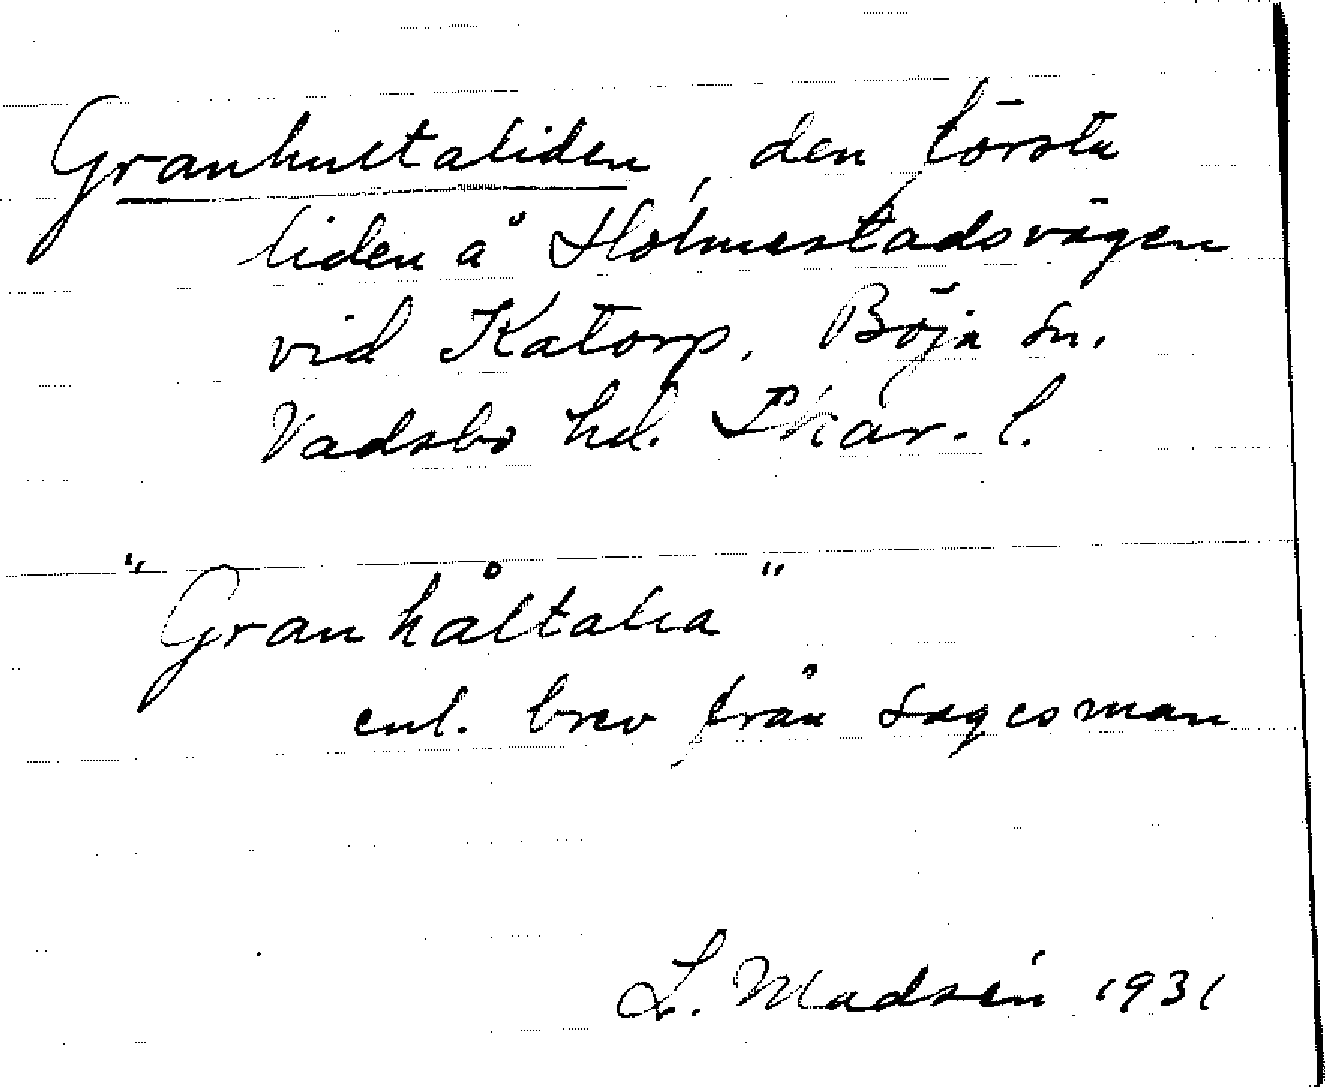 Granhultaliden, den första
liden å Holmestadsvägen
vid Katorp, Böja sn.
Vadsbo hd. Skar. l.
"Granhåltalia"
enl. brev från sagesman
L. Madsén 1931